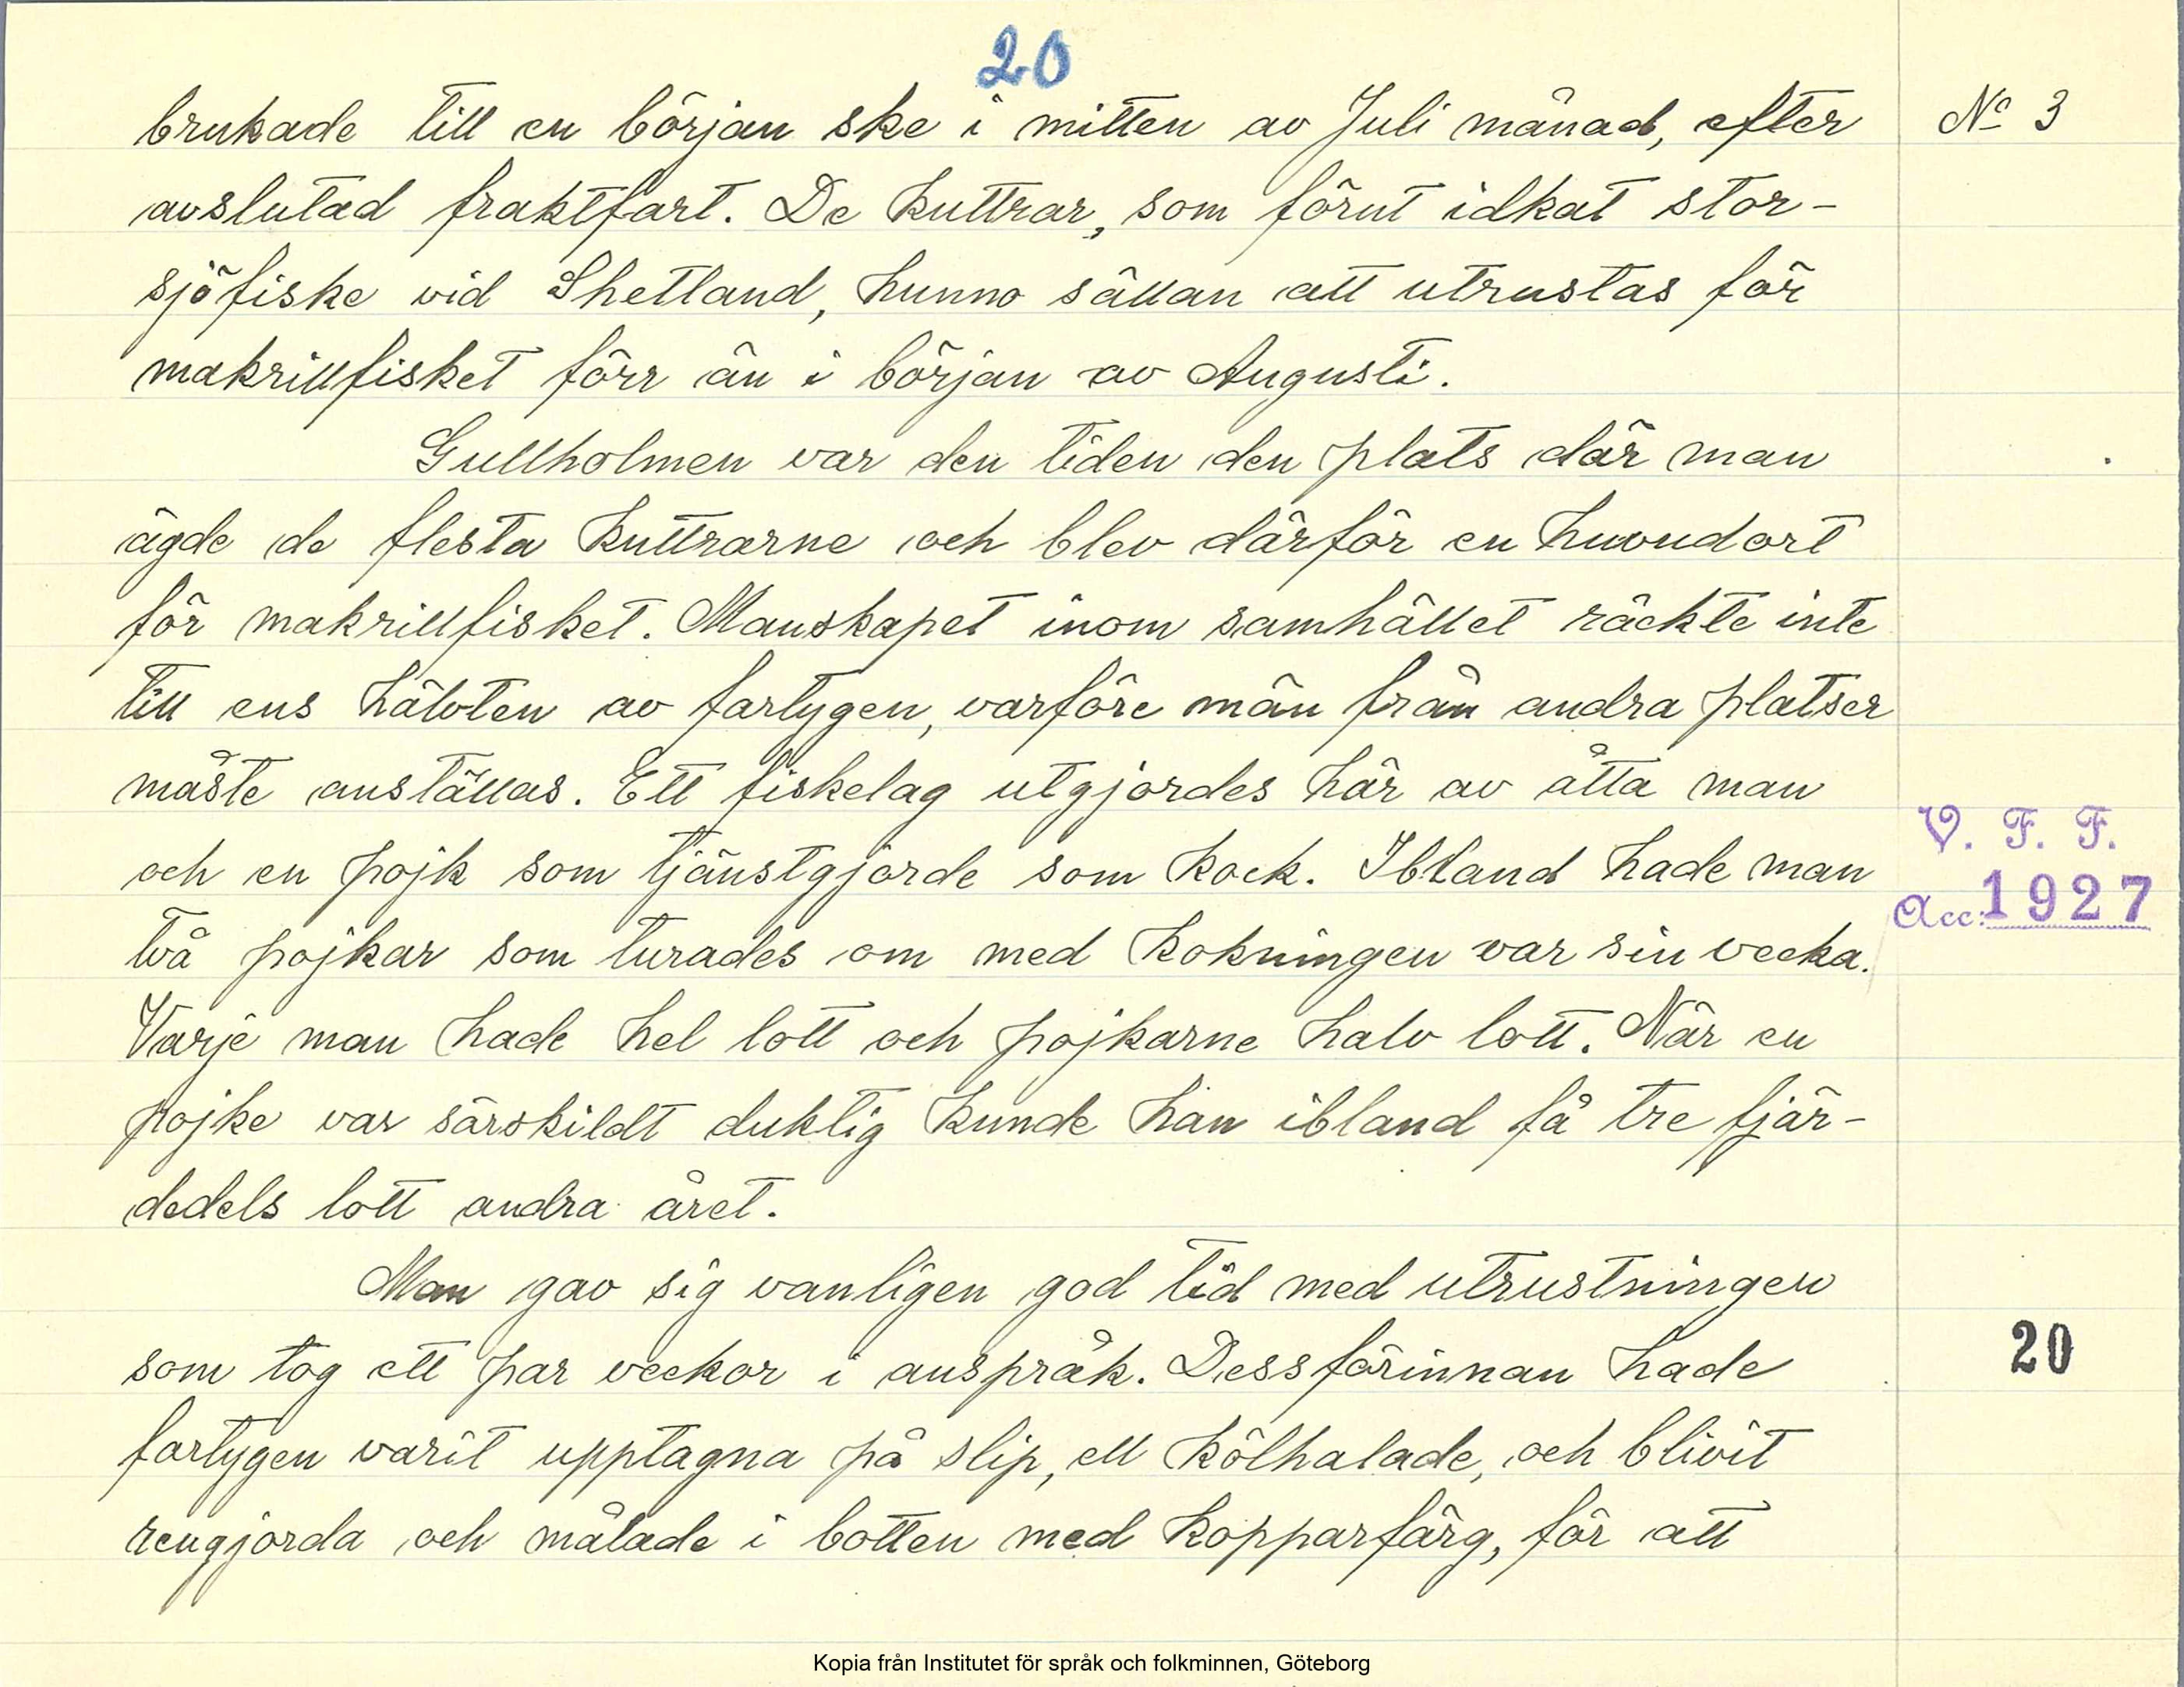 20
brukade till en början ske i mitten av Juli månad, efter
No 3
avslutad fraktfart. De kuttrar, som förut idkat stor-
sjöfiske vid Shetland, hunno sällan att utrustas för
makrillfisket förr än i början av Augusti.
Gullholmen var den tiden den plats där man
ägde de flesta kuttrarne och blev därför en huvudort
för makrillfisket. Manskapet inom samhället räckte inte
till ens hälvten av fartygen, varföre män från andra platser
måste anställas. Ett fiskelag utgjordes här av åtta man
V. F. F.
och en pojk som tjänstgjorde som kock. Ibland hade man
Acc: 1927
två pojkar som turades om med kokningen var sin vecka.
Varje man hade hel lott och pojkarne halv lott. När en
pojke var särskildt duktig kunde han ibland få tre fjär-
dedels lott andra året.
Man gav sig vanligen god tid med utrustningen
som tog ett par veckor i anspråk. Dessförinnan hade
20
fartygen varit upptagna på slip, ell kölhalade, och blivit
rengjorda och målade i botten med kopparfärg, för att
Kopia från Institutet för språk och folkminnen, Göteborg